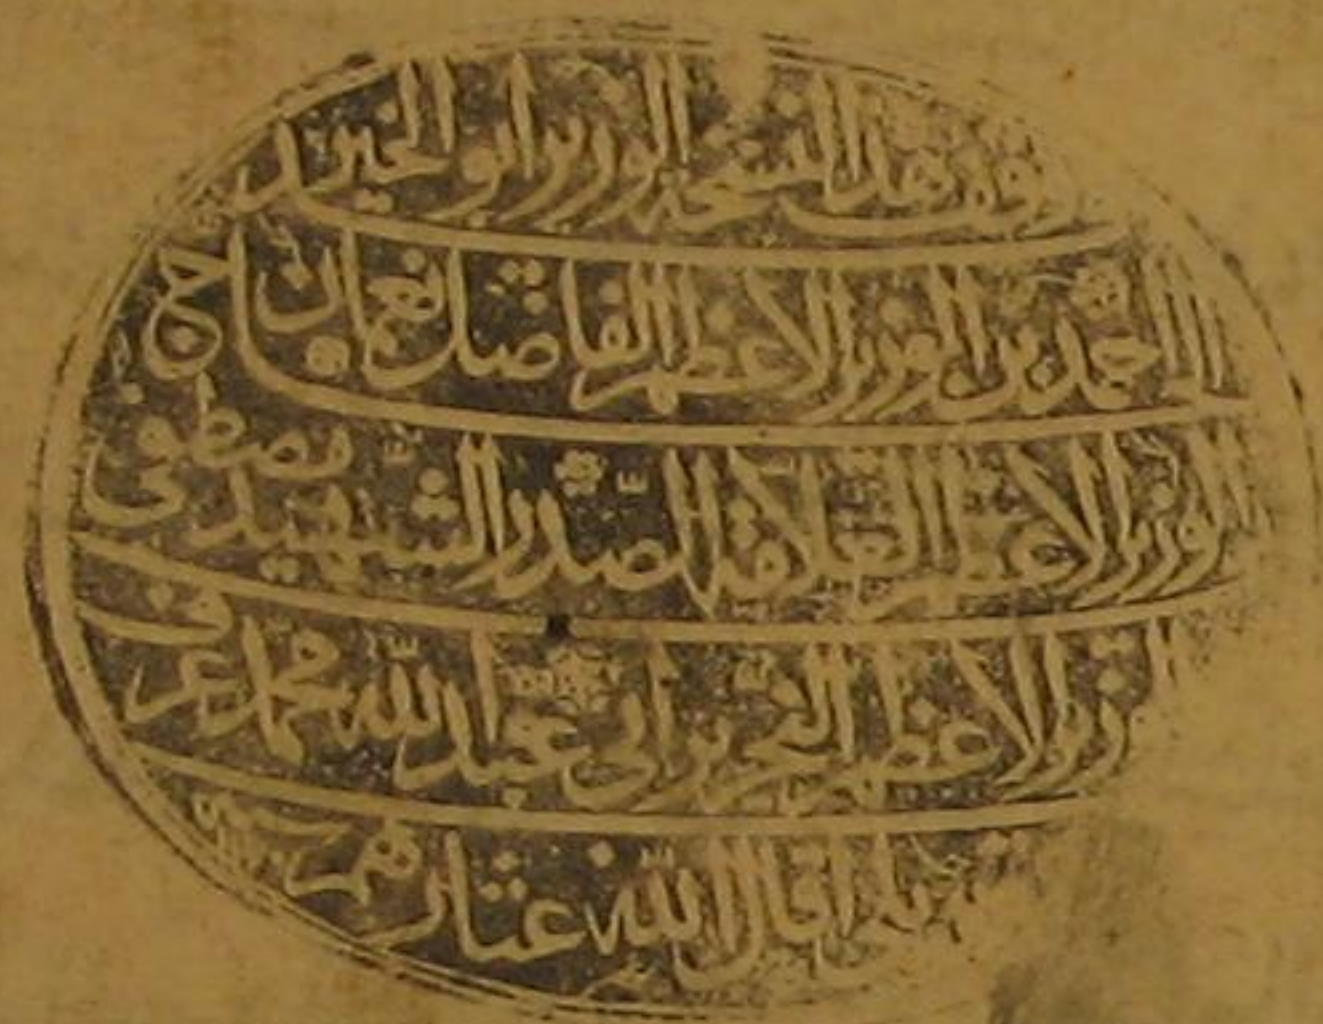 وقف هذا النسخة الوزير ابو الخير
احمد بن الوزير الاعظم الفاضل نعمان بن
الوزير الاعظم العلامة الصدر الشهيد مصطفى
الوزير الاعظم النحرير ابي عبد الله محمد عرف
اقال الله عثارهم